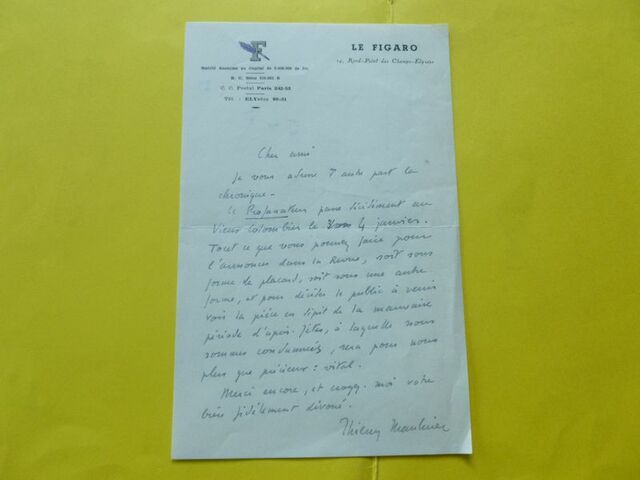 F
Société Anonyme au Capital de
C. C. Postal Paris 242-53
Tél. : ELYsées
LE FIGARO
14, Rond-Point des Champs-Elysées
Cher ami
Je vous adresse d'autre part la
chronique.
Le Profanateur passe décidément au
Vieux Colombier le 4 janvier.
Tout ce que vous pourrez faire pour
l'annoncer dans la Revue, soit sous
forme de placard, soit sous une autre
forme, et pour décider le public à venir
voir la pièce en dépit de la mauvaise
période d'après-fêtes, à laquelle nous
sommes condamnés, sera pour nous
plus que précieux : vital.
Merci encore, et croyez-moi votre
bien fidèlement dévoué.
Thierry Maulnier